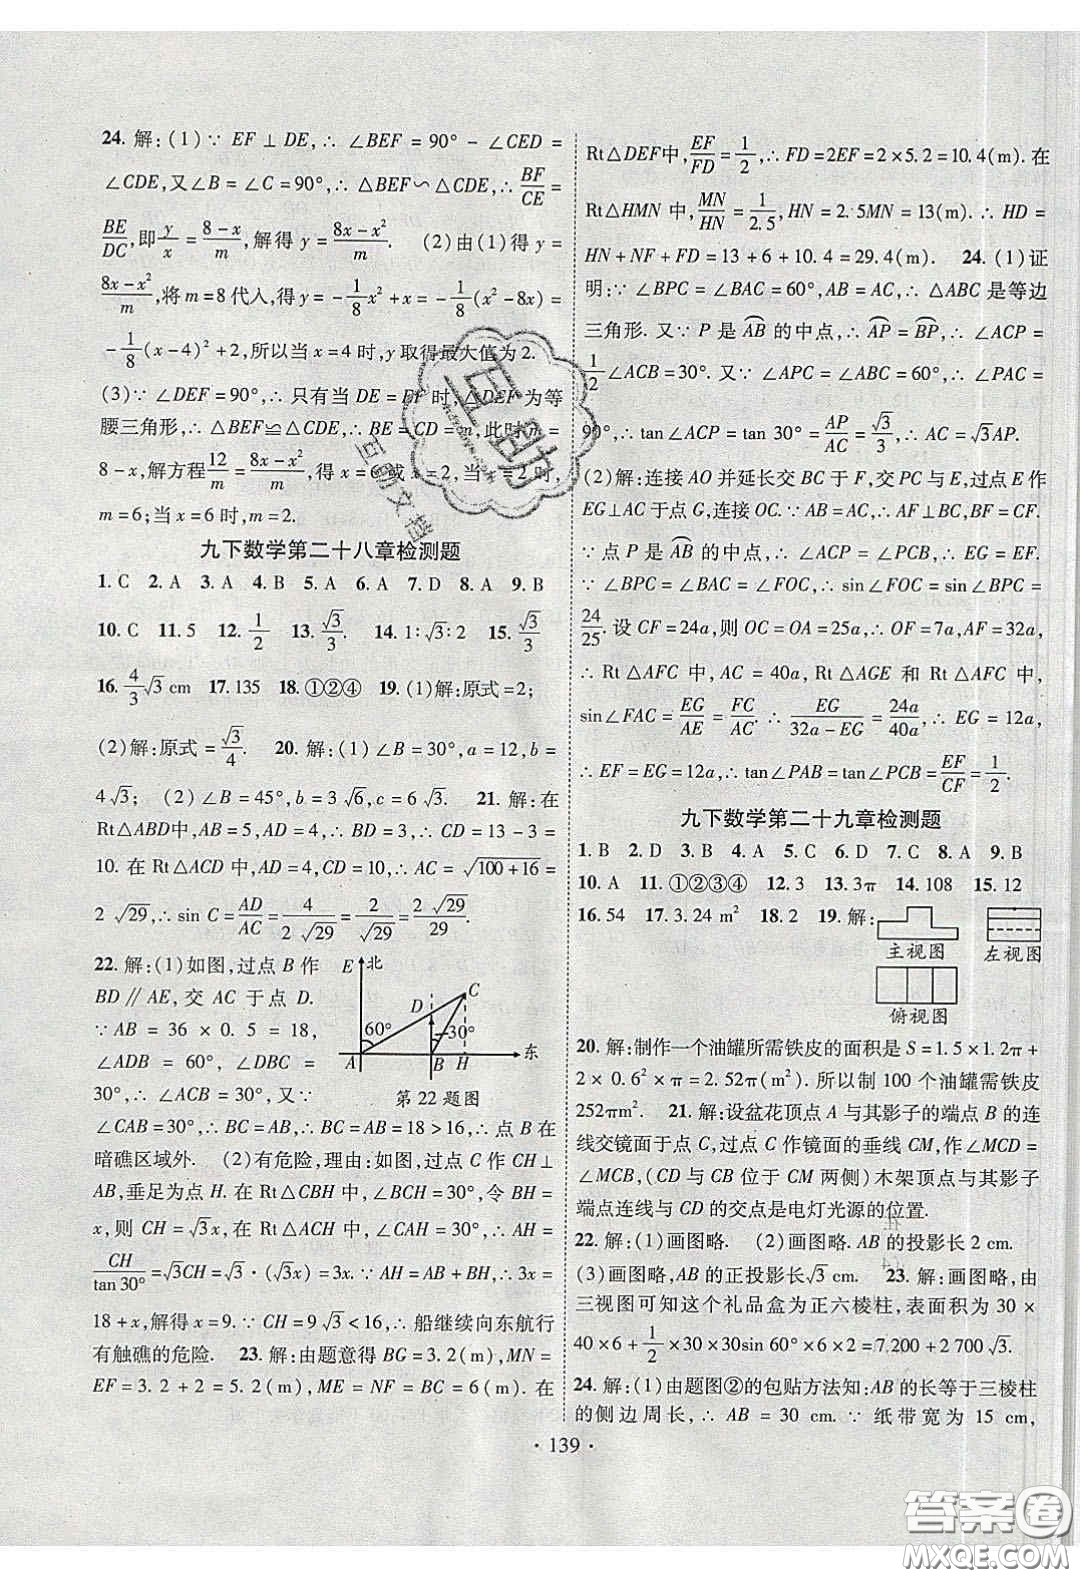 24. 解:(1)∵ EF⊥DE,∴ ∠BEF=90°-∠CED=
∠CDE,又∠B=∠C=90°,∴ △BEF∽△CDE,∴ BF/CE=
BE/DC,即y/x=(8-x)/m,解得 y=(8x-x²)/m. (2)由(1)得 y=
(8x-x²)/m,将 m=8代入,得 y=-1/8x²+x=-1/8(x²-8x)=
-1/8(x-4)²+2,所以当 x=4时,y取得最大值为2.
(3)∵ ∠DEF=90°,∴ 只有当 DE=EF时,△DEF为等
腰三角形,∴ △BEF≌△CDE,∴ BE=CD=m,此时 m=
8-x,解方程12/m=(8x-x²)/m,得 x=6或 x=2,当 x=2时,
m=6;当 x=6时,m=2.
九下数学第二十八章检测题
1. C 2. A 3. A 4. B 5. A 6. A 7. D 8. A 9. B
10. C 11. 5 12. 1/2 13. √3/3. 14. 1∶√3∶2 15. √3/3
16. 4/3√3 cm 17. 135 18. ①②④ 19. (1)解:原式=2;
(2)解:原式=√3/4. 20. 解:(1)∠B=30°,a=12,b=
4√3; (2)∠B=45°,b=3√6,c=6√3. 21. 解:在
Rt△ABD中,AB=5,AD=4,∴ BD=3,∴ CD=13-3=
10. 在 Rt△ACD 中,AD=4,CD=10,∴ AC=√(100+16)=
2√29,∴ sin C=AD/AC=4/(2√29)=2/√29=2√29/29.
22. 解:(1)如图,过点 B 作
BD∥AE,交 AC 于点 D.
∵ AB = 36 × 0.5 = 18,
∠ADB = 60°,∠DBC =
30°,∴ ∠ACB = 30°. ∵
∠CAB=30°,∴ BC=AB,∴ BC=AB=18>16,∴ 点 B 在
暗礁区域外. (2)有危险,理由:如图,过点 C 作 CH⊥
AB,垂足为点 H. 在 Rt△CBH 中,∠BCH=30°,令 BH=
x,则 CH=√3x. 在 Rt△ACH 中,∠CAH=30°,∴ AH=
CH/tan30°=√3CH=√3·(√3x)=3x. ∵ AH=AB+BH,∴ 3x=
18+x,解得 x=9. ∵ CH=9√3<16,∴ 船继续向东航行
有触礁的危险. 23. 解:由题意得 BG=3.2(m),MN=
EF=3.2+2=5.2(m),ME=NF=BC=6(m). 在
E 北
D C
60° 30°
A B H 东
第22题图
Rt△DEF中,EF/FD=1/2,∴ FD=2EF=2×5.2=10.4(m). 在
Rt△HMN 中,MN/HN=1/2.5,HN=2.5MN=13(m). ∴ HD=
HN+NF+FD=13+6+10.4=29.4(m). 24. (1)证
明:∵ ∠BPC=∠BAC=60°,AB=AC,∴ △ABC 是等边
三角形. 又∵ P 是AB⌒的中点,∴ AP⌒=BP⌒,∴ ∠ACP=
1/2∠ACB=30°. 又∵ ∠APC=∠ABC=60°,∴ ∠PAC=
90°,∴ tan∠ACP=tan 30°=AP/AC=√3/3,∴ AC=√3AP.
(2)解:连接 AO 并延长交 BC 于 F,交 PC 与 E,过点 E 作
EG⊥AC 于点 G,连接 OC. ∵ AB=AC,∴ AF⊥BC,BF=CF.
∵ 点 P 是AB⌒的中点,∴ ∠ACP=∠PCB,∴ EG=EF.
∵ ∠BPC=∠BAC=∠FOC,∴ sin∠FOC=sin∠BPC=
24/25. 设 CF=24a,则 OC=OA=25a,∴ OF=7a,AF=32a,
∴ Rt△AFC 中,AC=40a,Rt△AGE 和 Rt△AFC 中,
sin∠FAC=EG/AE=FC/AC. ∴ EG/(32a-EG)=24a/40a,∴ EG=12a,
∴ EF=EG=12a,∴ tan∠PAB=tan∠PCB=EF/CF=1/2.
九下数学第二十九章检测题
1. B 2. D 3. B 4. A 5. C 6. D 7. C 8. A 9. B
10. A 11. ①②③④ 12. 3 13. 3π 14. 108 15. 12
16. 54 17. 3.24 m² 18. 2 19. 解:
主视图 左视图
俯视图
20. 解:制作一个油罐所需铁皮的面积是 S=1.5×1.2π+
2×0.6²×π=2.52π(m²). 所以制 100 个油罐需铁皮
252πm². 21. 解:设盆花顶点 A 与其影子的端点 B 的连
线交镜面于点 C,过点 C 作镜面的垂线 CM,作∠MCD=
∠MCB,(CD 与 CB 位于 CM 两侧)木架顶点与其影子
端点连线与 CD 的交点是电灯光源的位置.
22. 解:(1)画图略. (2)画图略. AB 的投影长 2 cm.
(3)画图略,AB 的正投影长√3 cm. 23. 解:画图略,由
三视图可知这个礼品盒为正六棱柱,表面积为 30×
40×6+1/2×30×30sin60°×6×2=7 200+2 700√3.
24. 解:(1)由题图②的包贴方法知:AB 的长等于三棱柱
的侧边周长,∴ AB=30 cm. ∵ 纸带宽为 15 cm,
· 139 ·
互助
互助文档
答案圈
MXQE.COM